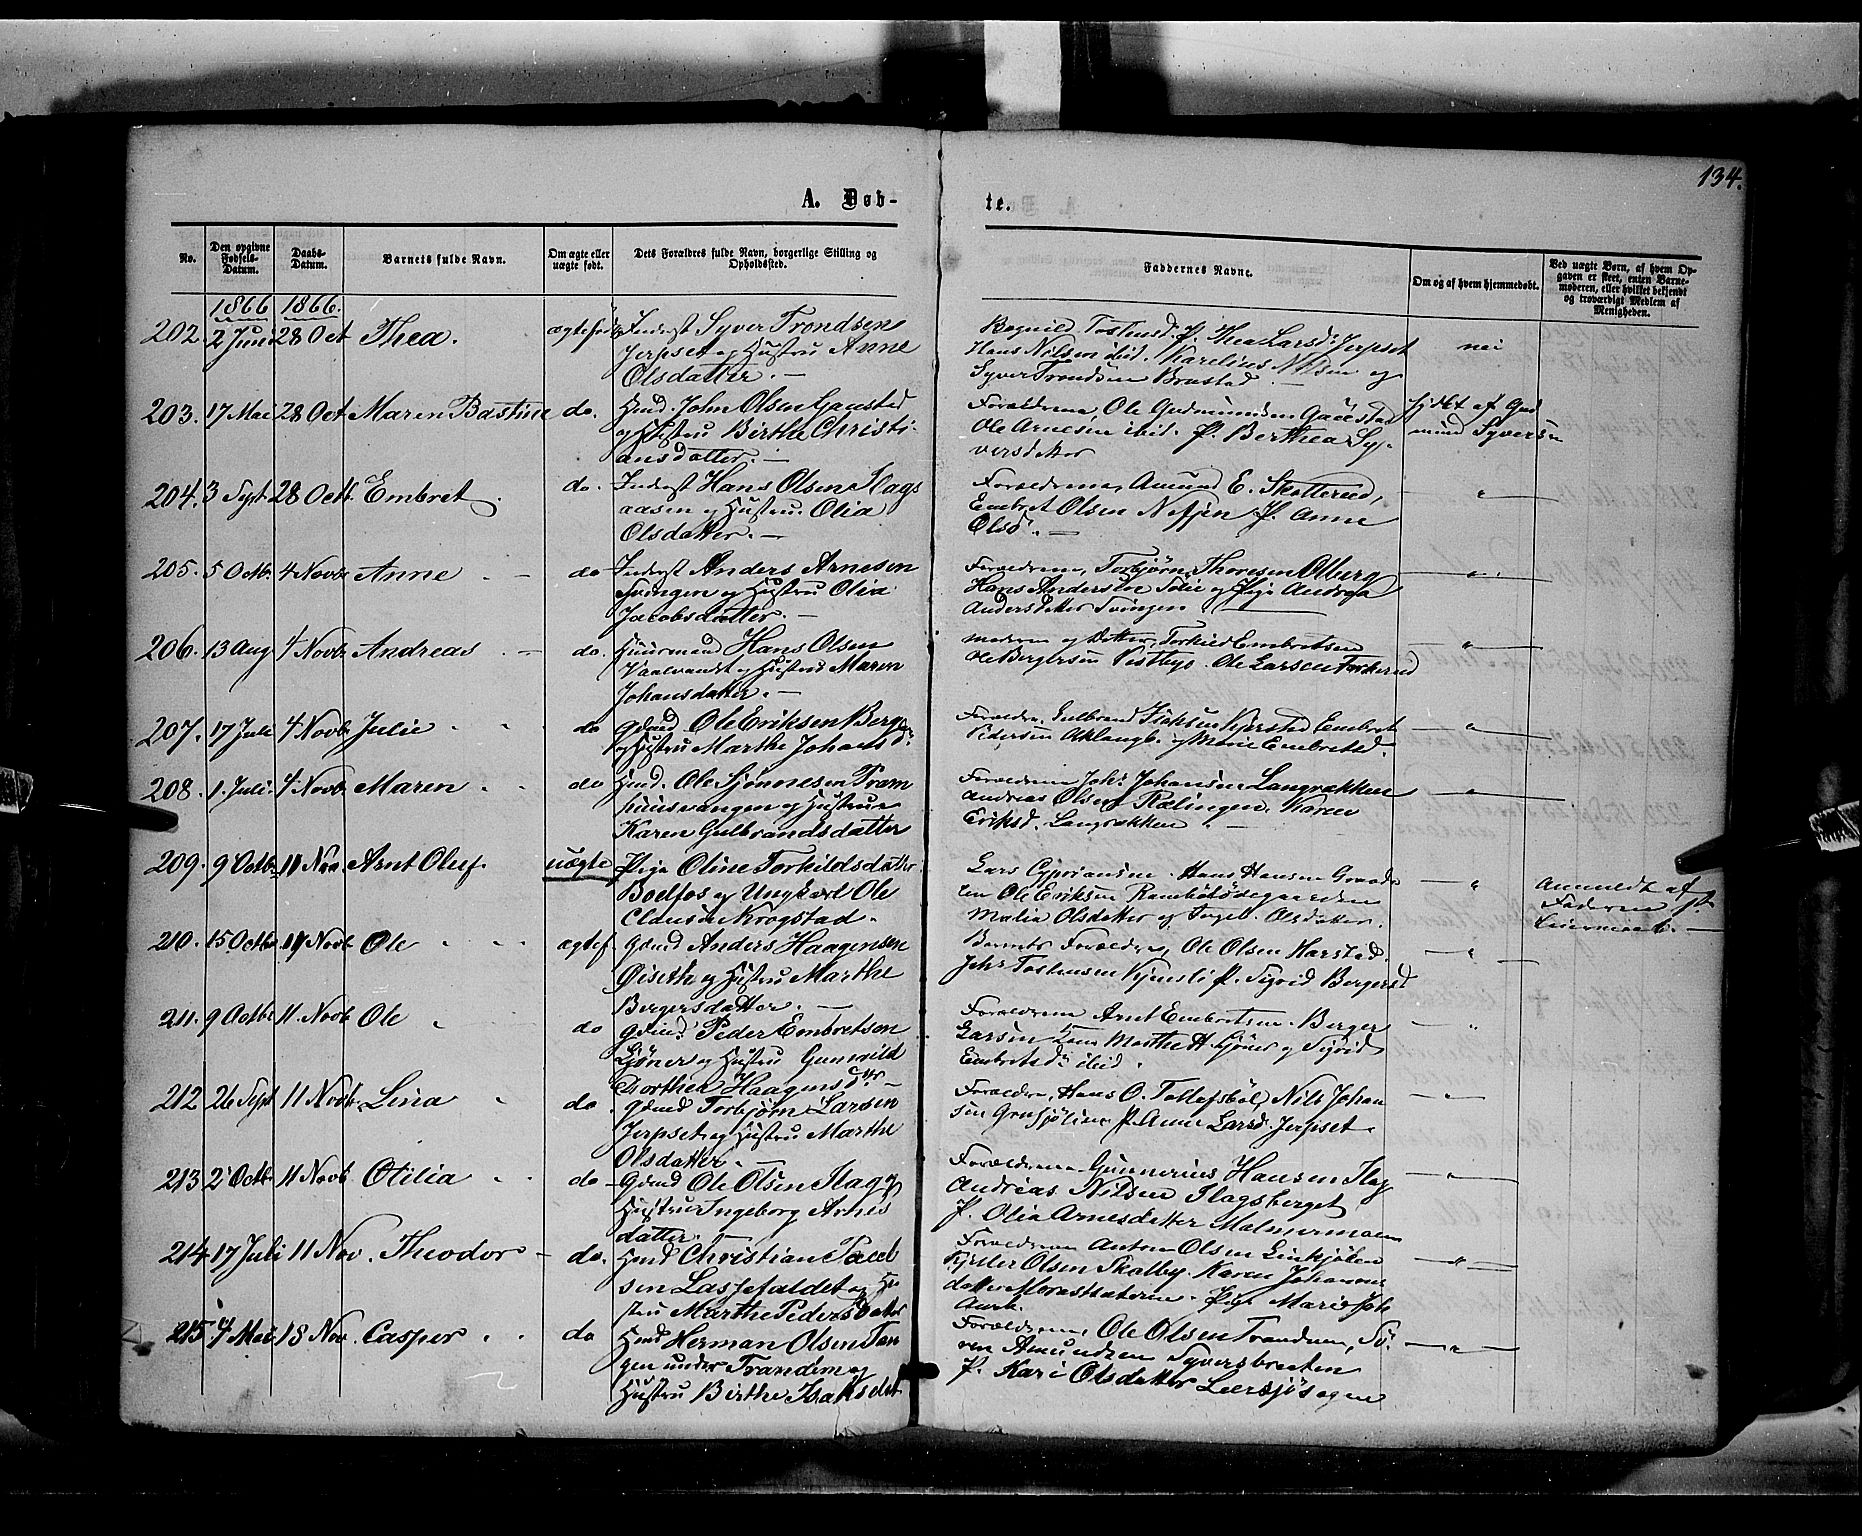 134.
A. Døb-
te.
No.
Den opgivne Fødsels-Datum.
Daabs-Datum.
Barnets fulde Navn.
Om ægte eller uægte født.
Dets Forældres fulde Navn, borgerlige Stilling og Opholdssted.
Faddernes Navne.
Om og af hvem hjemmedøbt.
Ved uægte Børn, af hvem Opgaven er skeet, enten Barnemoderen, eller hvilket bekjendt og troværdigt Medlem af Menigheden.
1866 1866.
202. 2 Juni 28 Oct Thea. Inderst Syver Trondsen
Jerpset og Hustru Anne
Olsdatter. —
Thea Larsd. Jerpset nei
Hans Nilsen ibid. Karelius Nilsen og
Syver Trondsen
203. 17 Mai 28 Oct Maren Bastine do. Hmd. John Olsen
og Hustru Birthe Christi
ansdatter. —
Forældrene, Ole Gudmundsen
Ole Arnesen ibid. P. Berthea Sy-
versdatter
af Gud
mund Syversen
204. 3 Sept 28 Octb. Embret do. Inderst Hans Olsen Flags
aasen og Hustru Olia
Olsdatter. —
Forældrene, Amund E. Skotterud,
Embret Olsen P. Anne
Olsd. — "
205. 5 Octb. 4 Novb. Anne do Inderst Anders Arnesen
Svingen og Hustru Olia
Jacobsdatter. —
Forældrene, Torbjørn Thoresen Olberg
Hans Andersen og Pige Andrea
Andersdatter Svingen "
206. 13 Aug 4 Novb. Andreas do. Huusmand Hans Olsen
og Hustru Maren
Johansdatter. —
Moderen og Datter, Torkild Embretsen
Ole Bergersen Vestby. Ole Larsen "
207. 17 Juli 4 Novb. Julie do Gdmd Ole Eriksen Berg
og Hustru Marthe Johansd.
Forældre. Gulbrand Embret
Pedersen og Marie Embretsd. "
208. 1. Juli 4 Novb. Maren do Hmd. Ole Sjønnesen Fram
huusvangen og Hustru
Karen Gulbrandsdatter
Forældrene Johs Johansen Langrækken
Andreas Olsen Rælingen. Karen
Eriksd. Langrækken. "
209. 9 Octb. 11 Nov Arnt Oluf. uægte Pige Oline Torkildsdatter
Bodfos og Ungkarl Ole
Clausen Krogstad.
Lars Cypriansen. Hans Hansen
Ole Eriksen
Malia Olsdatter og Ingeb. Olsdatter. "
Anmeldt af
Faderen
210. 15 Octb. 11 Novb. Ole ægtef. Gdmd Anders Haagensen
Øiseth og Hustru Marthe
Bergersdatter. —
Barnets Forældre, Ole Olsen Harstad.
Johs Tostensen P. Sigrid Bergersd "
211. 9 Octbr 11. Novb. Ole do Gdmd Peder Embretsen
Gjøner og Hustru Gunnild
Dorthea Haagensdtr —
Forældrene Arnt Embretsen. Berger
Larsen Marthe H. Gjøner og Sigrid
Embretsd. ibid. "
212 26 Sept 11 Novb. Lina do. Gdmd Torbjørn Larsen
Jerpset og Hustru Marthe
Olsdatter. —
Forældre, Hans O. Tollefsbøl, Nils Johan
sen P. Anne Larsd. Jerpset. "
213 2 Octb. 11 Novb Otilia do Gdmd Ole Olsen Flag og
Hustru Ingeborg Arnes
datter —
Forældrene Gunnerius Hansen Flag
Andreas Nilsen Flagsberget
P. Olia Arnesdatter Malmermoen "
214 17 Juli 11 Nov. Theodor do. Hmd Christian Paul
sen Lassefaldet og Hu
stru Marthe Pedersdatter
Forældrene Anton Olsen Linkjølen
Olsen Skalby. Karen Johannes
datter Pige Marie Joh
Aurb. "
215 4 Mai 18 Nov. Casper do Hmd Herman Olsen Tan
gen under Trandem og
Hustru Birthe Isaksdat
Forældrene, Ole Olsen Trandem, Sø
ren Amundsen Syversbraaten
P. Kari Olsdatter "